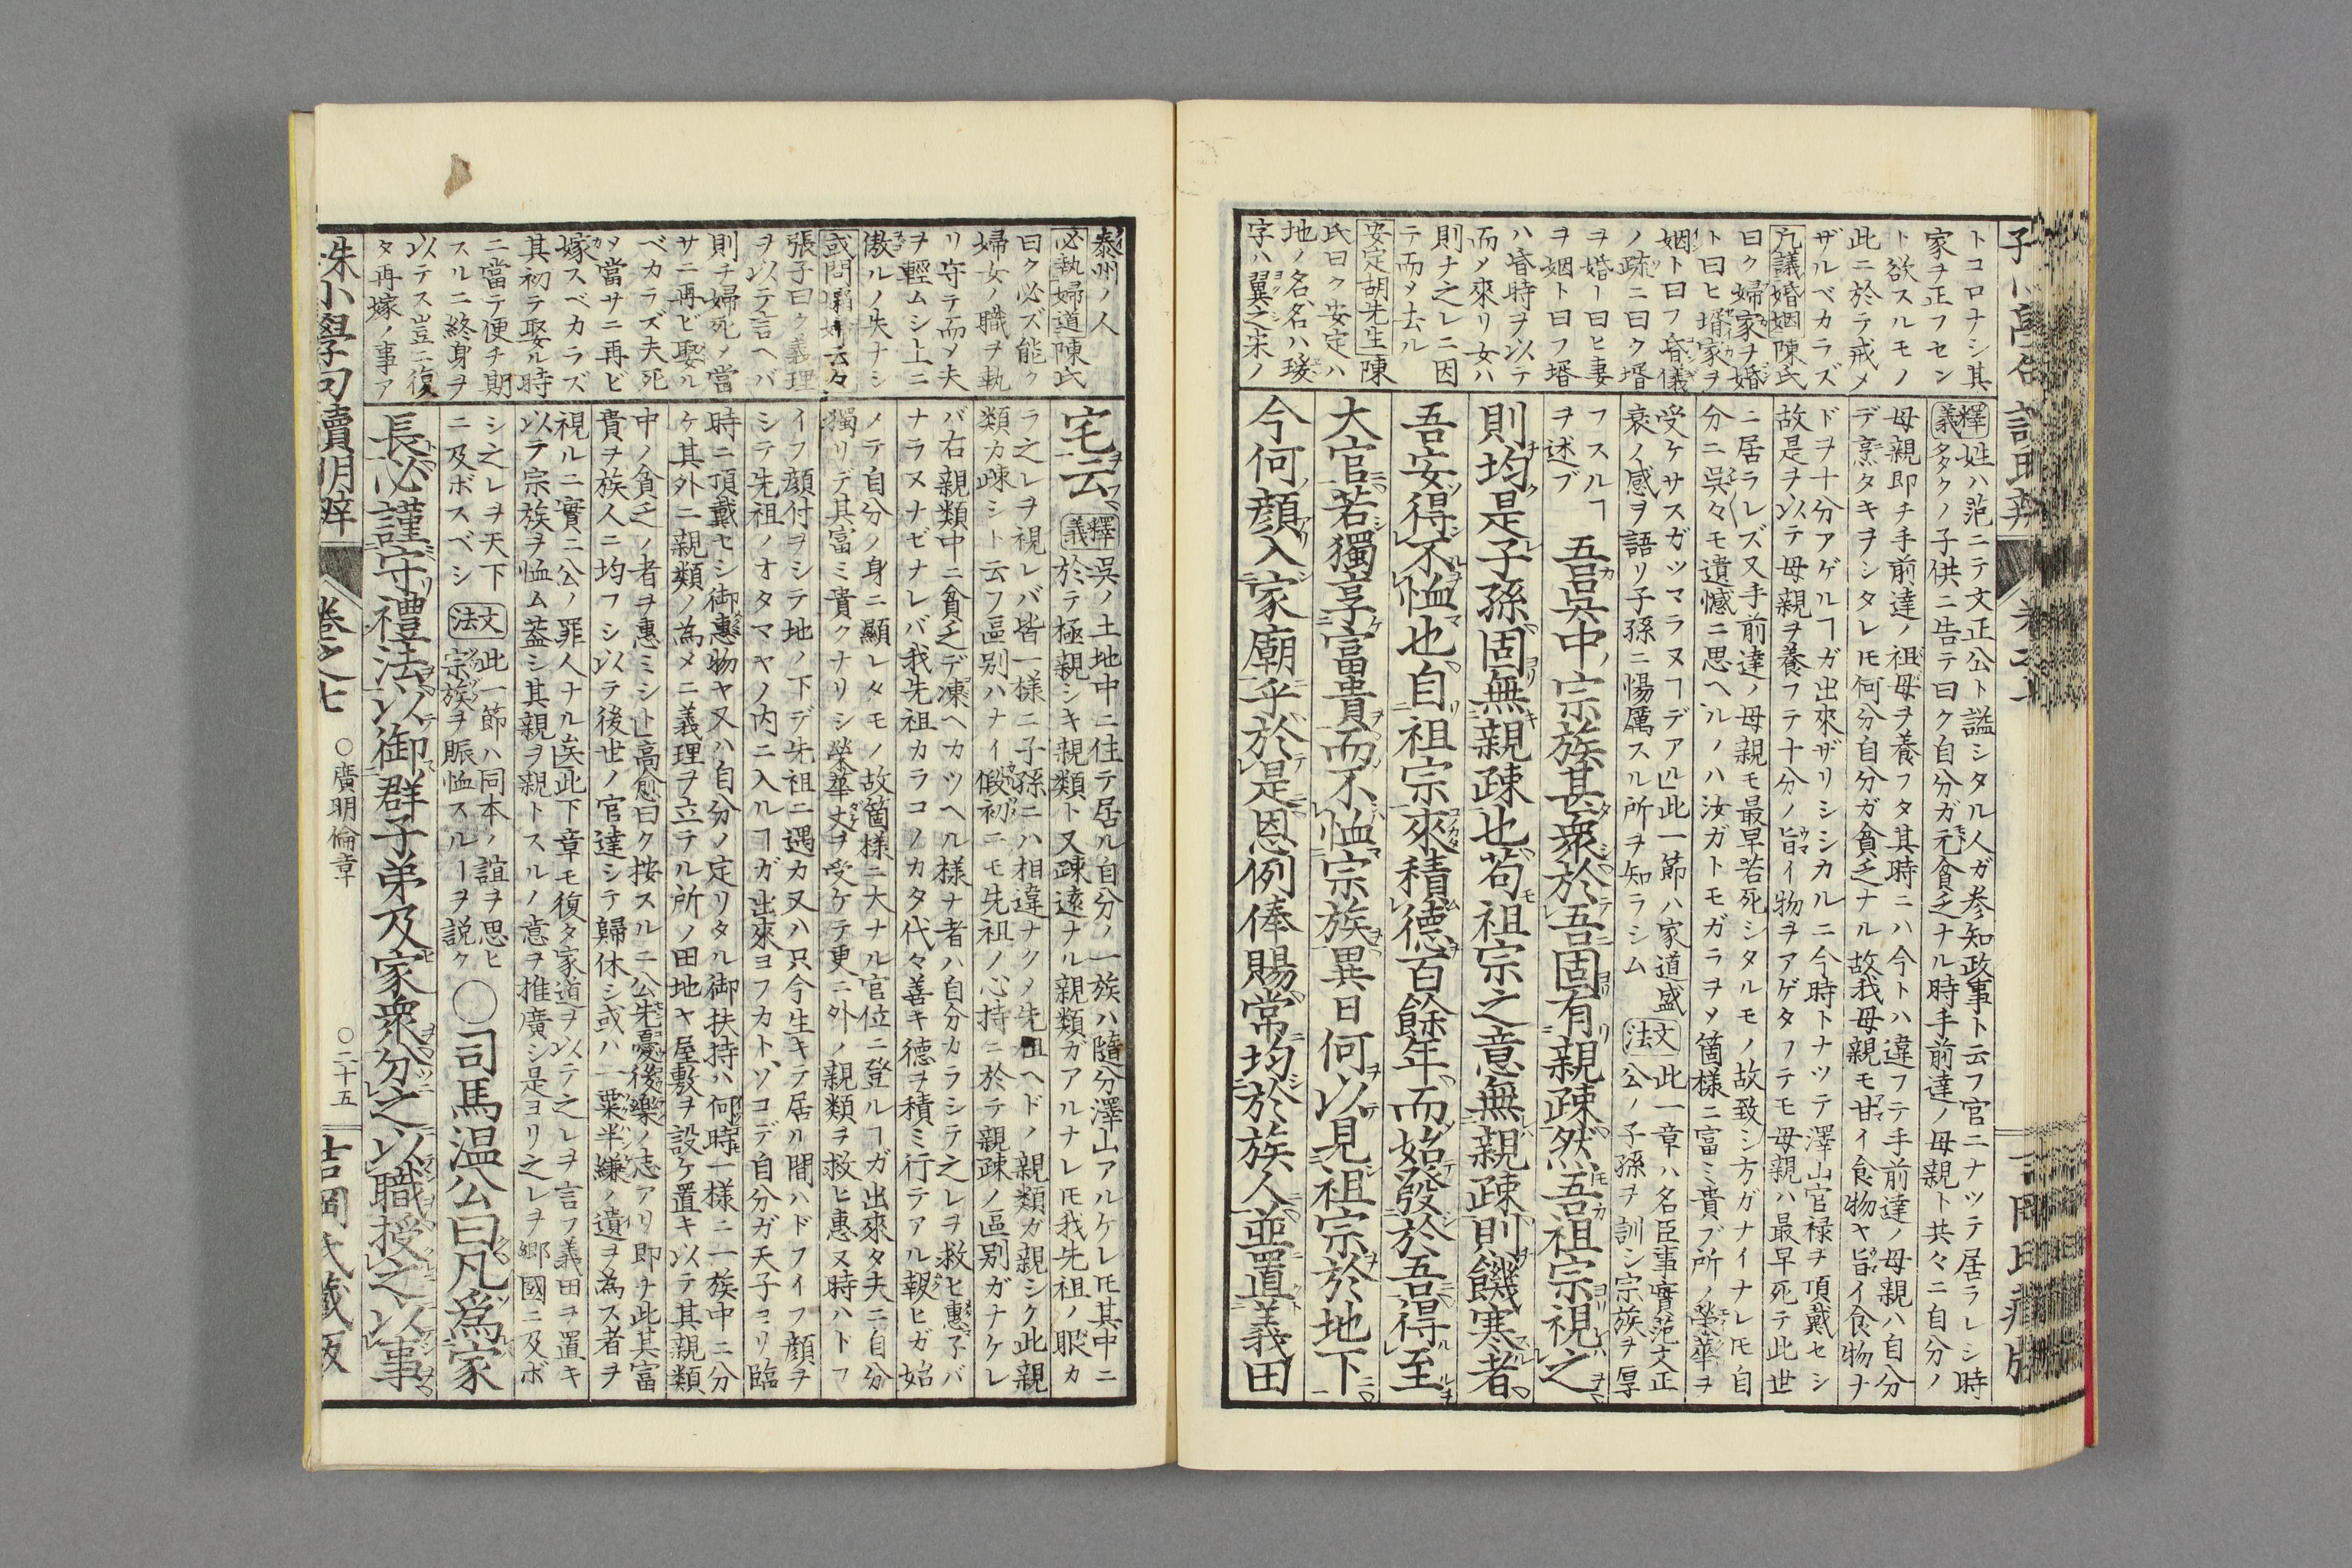 トコロナシ其
家ヲ正フセン
ト欲スルモノ
此ニ於テ戒メ
ザルベカラズ
凡議婚姻陳氏
曰ク婦家ヲ婚
ト曰ヒ壻家ヲ
姻ト曰フ昏儀
ノ疏ニ曰ク壻
ヲ婚ト曰ヒ妻
ヲ姻ト曰フ壻
ハ昏時ヲ以テ
而メ來リ女ハ
則ナ之レニ因
テ而メ去ル
安定胡先生陳
氏曰ク安定ハ
地ノ名名ハ瑗
字ハ翼之宋ノ
釋義 姓ハ范ニテ文正公ト謚シタル人ガ参知政事ト云フ官ニナツテ居ラレシ時
多クノ子供ニ告テ曰ク自分ガ元貧乏ナル時手前達ノ母親ト共々ニ自分ノ
母親即チ手前達ノ祖母ヲ養フタ其時ニハ今トハ違フテ手前達ノ母親ハ自分
デ烹タキヲシタレ𪜈何分自分ガ貧乏ナル故我母親モ甘イ食物ヤ旨イ食物ナ
ドヲ十分アゲルヿガ出來ザリシシカルニ今時トナツテ澤山官禄ヲ頂戴セシ
故是ヲ以テ母親ヲ養フテ十分ノ旨イ物ヲアゲタフテモ母親ハ最早死テ此世
ニ居ラレズ又手前達ノ母親モ最早若死シタルモノ故致シ方ガナイナレ𪜈自
分ニ呉々モ遺憾ニ思ヘルノハ汝ガトモガラヲメ箇様ニ富ミ貴ブ所ノ榮華ヲ
受ケサスガツマラヌヿデアル」此一節ハ家道盛
衰ノ感ヲ語リ子孫ニ惕厲スル所ヲ知ラシム 文法 此一章ハ名臣事實范文正
公ノ子孫ヲ訓シ宗族ヲ厚
フスルヿ
ヲ述ブ
吾吳中ノ宗族甚衆於吾固有親疎然吾祖宗視之
則均是子孫固無親疎也苟祖宗之意無親疎則饑寒者
吾安得不恤也自祖宗來積德百餘年而始發於吾得至
大官若獨享富貴而不恤宗族異日何以見祖宗於地下
今何顏入家廟乎於是恩例俸賜常均於族人並置義田
泰州ノ人
必執婦道陳氏
曰ク必ズ能ク
婦女ノ職ヲ執
リ守テ而メ夫
ヲ輕ムシ上ニ
傲ルノ失ナシ
或問孀婦云々
張子曰ク義理
ヲ以テ言ヘバ
則チ婦死メ當
サニ再ビ娶ル
ベカラズ夫死
メ當サニ再ビ
嫁スベカラズ
其初テ娶ル時
ニ當テ便チ期
スルニ終身ヲ
以テス豈ニ復
タ再嫁ノ事ア
宅云
釋義 吳ノ土地中ニ住テ居ル自分ノ一族ハ隨分澤山アルケレ𪜈其中ニ
於テ極親シキ親類ト又疎遠ナル親類ガアルナレ𪜈我先祖ノ眼カ
ラ之レヲ視レバ皆一様ニ子孫ニハ相違ナクメ先祖ヘドノ親類ガ親シク此親
類カ疎シト云フ區别ハナイ假初ニモ先祖ノ心持ニ於テ親疎ノ區别ガナケレ
バ右親類中ニ貧乏デ凍ヘカツヘル様ナ者ハ自分カラシテ之レヲ救ヒ惠子バ
ナラヌナゼナレバ我先祖カラコノカタ代々善キ德ヲ積ミ行テアル報ヒガ始
メテ自分ノ身ニ顯レタモノ故箇様ニ大ナル官位ニ登ルヿガ出來タ夫ニ自分
獨リデ其富ミ貴クナリシ榮華丈ヲ受ケテ更ニ外ノ親類ヲ救ヒ惠ヌ時ハトフ
イフ顔付ヲシテ地ノ下デ先祖ニ遇カ又ハ只今生キテ居ル間ハドフイフ顔ヲ
シテ先祖ノオタマヤノ内ニ入ルヿガ出來ヨフカト、ソコデ自分ガ天子ヨリ臨
時ニ頂戴セシ御惠物ヤ又ハ自分ノ定リタル御扶持ハ何時一様ニ一族中ニ分
ケ其外ニ親類ノ為メニ義理ヲ立テル所ノ田地ヤ屋敷ヲ設ケ置キ以テ其親類
中ノ貧乏ノ者ヲ惠ミシト」高愈曰ク按スルニ公先憂後樂ノ志アリ即ナ此其富
貴ヲ族人ニ均フシ以テ後世ノ官達シテ歸休シ或ハ一粟半縑ノ遺ヲ為ス者ヲ
視ルニ實ニ公ノ罪人ナル矣此下章モ復タ家道ヲ以テ之レヲ言フ義田ヲ置キ
以テ宗族ヲ恤ム葢シ其親ヲ親トスルノ意ヲ推廣シ是ヨリ之レヲ郷國ニ及ボ
シ之レヲ天下
ニ及ボスベシ 文法 此一節ハ同本ノ誼ヲ思ヒ
宗族ヲ賑恤スルヿヲ説ク
〇司馬温公曰凡爲家
長必謹守禮法以御群子弟及家衆分之以職授之以事
朱小學句讀明辨 卷之七 〇廣明倫章 〇二十五 吉岡氏藏版